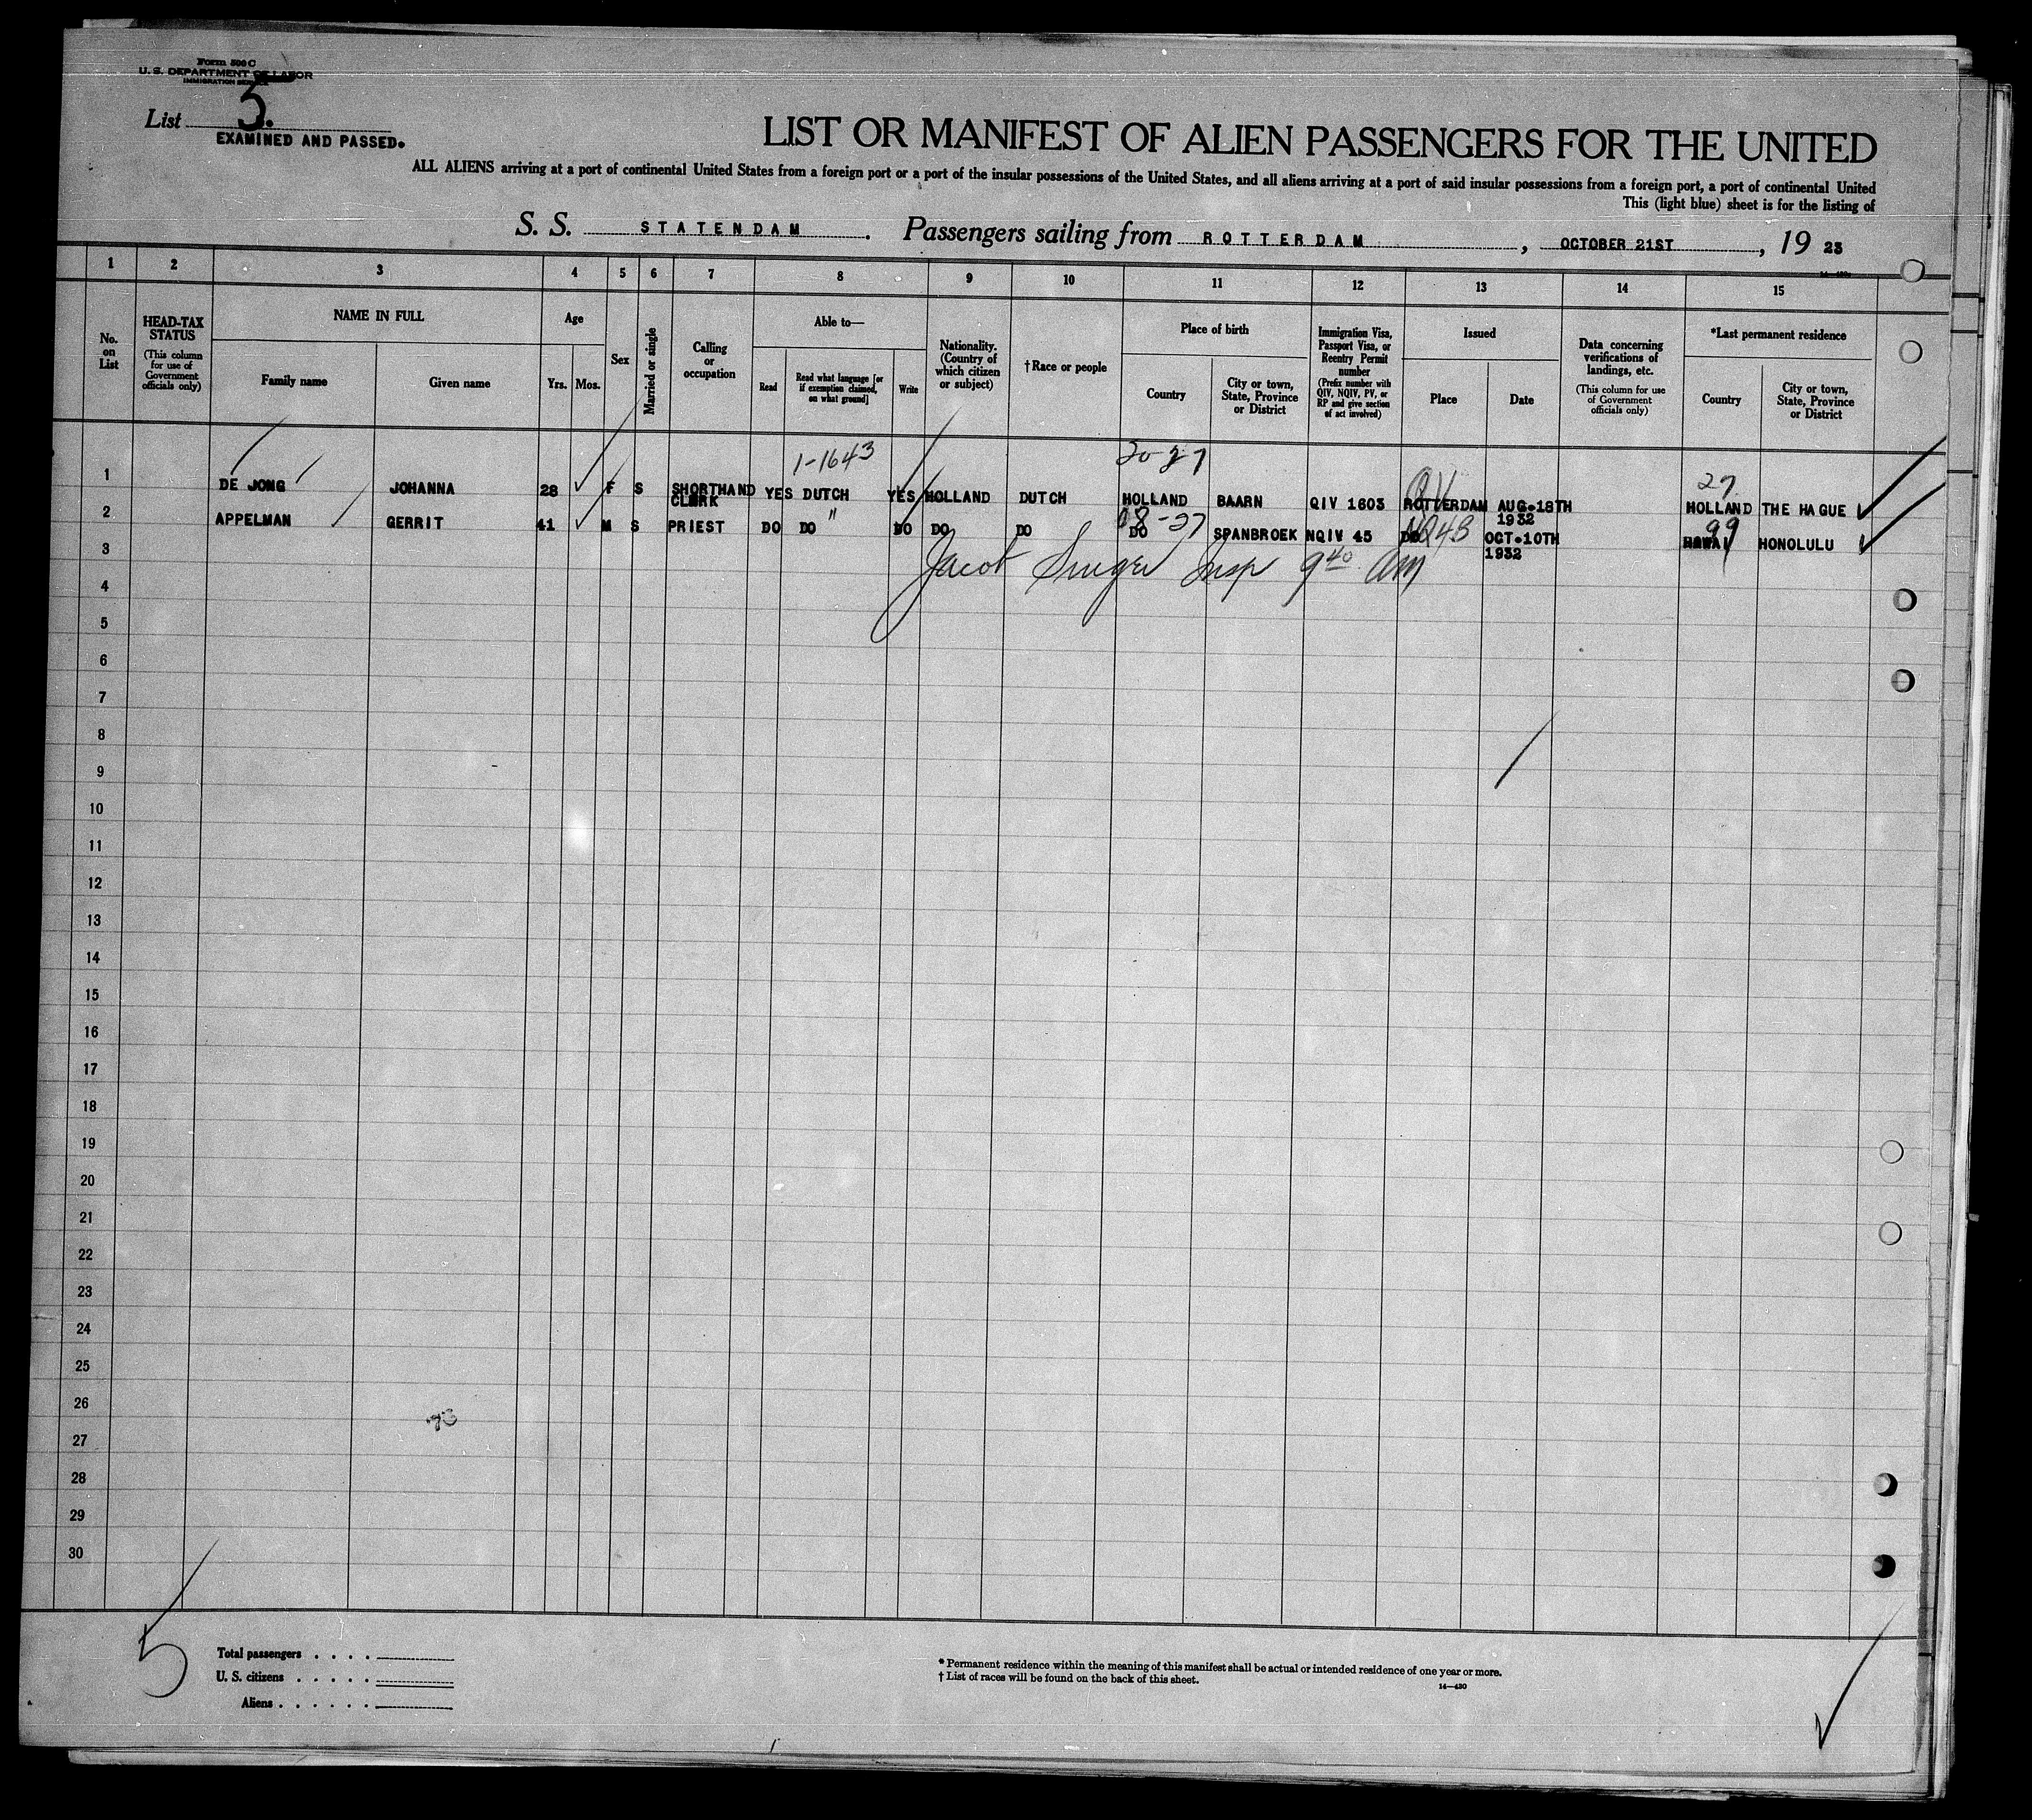 Form 500 C
U. S. DEPARTMENT OF LABOR
IMMIGRATION SERVICE
List 5.
EXAMINED AND PASSED.
LIST OR MANIFEST OF ALIEN PASSENGERS FOR THE UNITED
ALL ALIENS arriving at a port of continental United States from a foreign port or a port of the insular possessions of the United States, and all aliens arriving at a port of said insular possessions from a foreign port, a port of continental United
This (light blue) sheet is for the listing of
S. S. STATENDAM. Passengers sailing from ROTTERDAM, OCTOBER 21ST, 19 23
1 2 3 4 5 6 7 8 9 10 11 12 13 14 15
No. on List
HEAD-TAX STATUS (This column for use of Government officials only)
NAME IN FULL
Family name Given name
Age
Yrs. Mos.
Sex
Married or single
Calling or occupation
Able to—
Read Read what language [or if exemption claimed, on what ground] Write
Nationality. (Country of which citizen or subject)
†Race or people
Place of birth
Country City or town, State, Province or District
Immigration Visa, Passport Visa, or Reentry Permit number (Prefix number with QIV, NQIV, PV, or RP and give section of act involved)
Issued
Place Date
Data concerning verifications of landings, etc. (This column for use of Government officials only)
*Last permanent residence
Country City or town, State, Province or District
1-1643 20-27 QIV 27
1 DE JONG JOHANNA 28 F S SHORTHAND CLERK YES DUTCH YES HOLLAND DUTCH HOLLAND BAARN QIV 1603 ROTTERDAM AUG.18TH 1932 HOLLAND THE HAGUE
" 08-27 NQ4B 99
2 APPELMAN GERRIT 41 M S PRIEST DO DO DO DO DO DO SPANBROEK NQIV 45 DO OCT.10TH 1932 HAWAI HONOLULU
3
Jacob Singer Insp 9 40 am
4
5
6
7
8
9
10
11
12
13
14
15
16
17
18
19
20
21
22
23
24
25
26
27
28
29
30
5
Total passengers
U. S. citizens
Aliens
* Permanent residence within the meaning of this manifest shall be actual or intended residence of one year or more.
† List of races will be found on the back of this sheet.
14—430